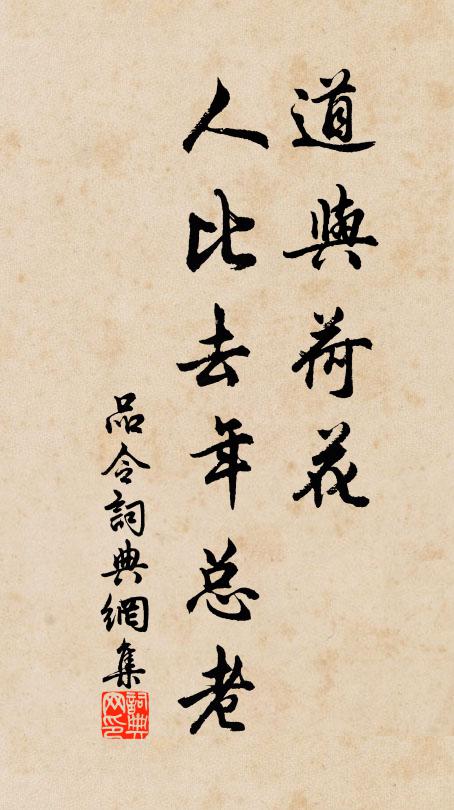 道與荷花
人比去年总老
品令詞典網集
詞典网印